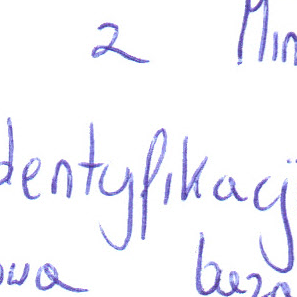 2 Min
dentyfikacj
owa bez